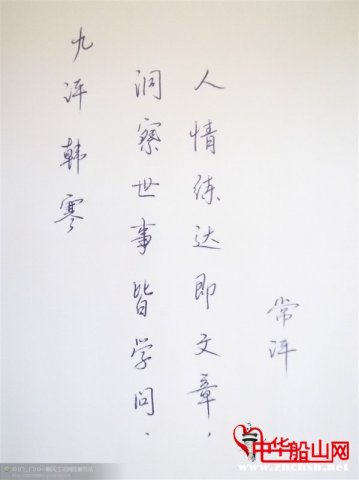 常洋
人情练达即文章,
洞察世事皆学问.
九洋韩寒
中华船山网
www.zhcnsn.net